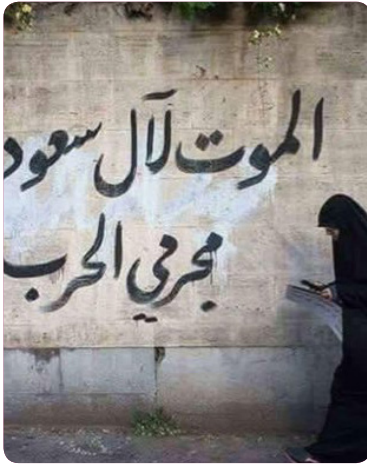 الموت لآل سعود
مجرمي الحرب